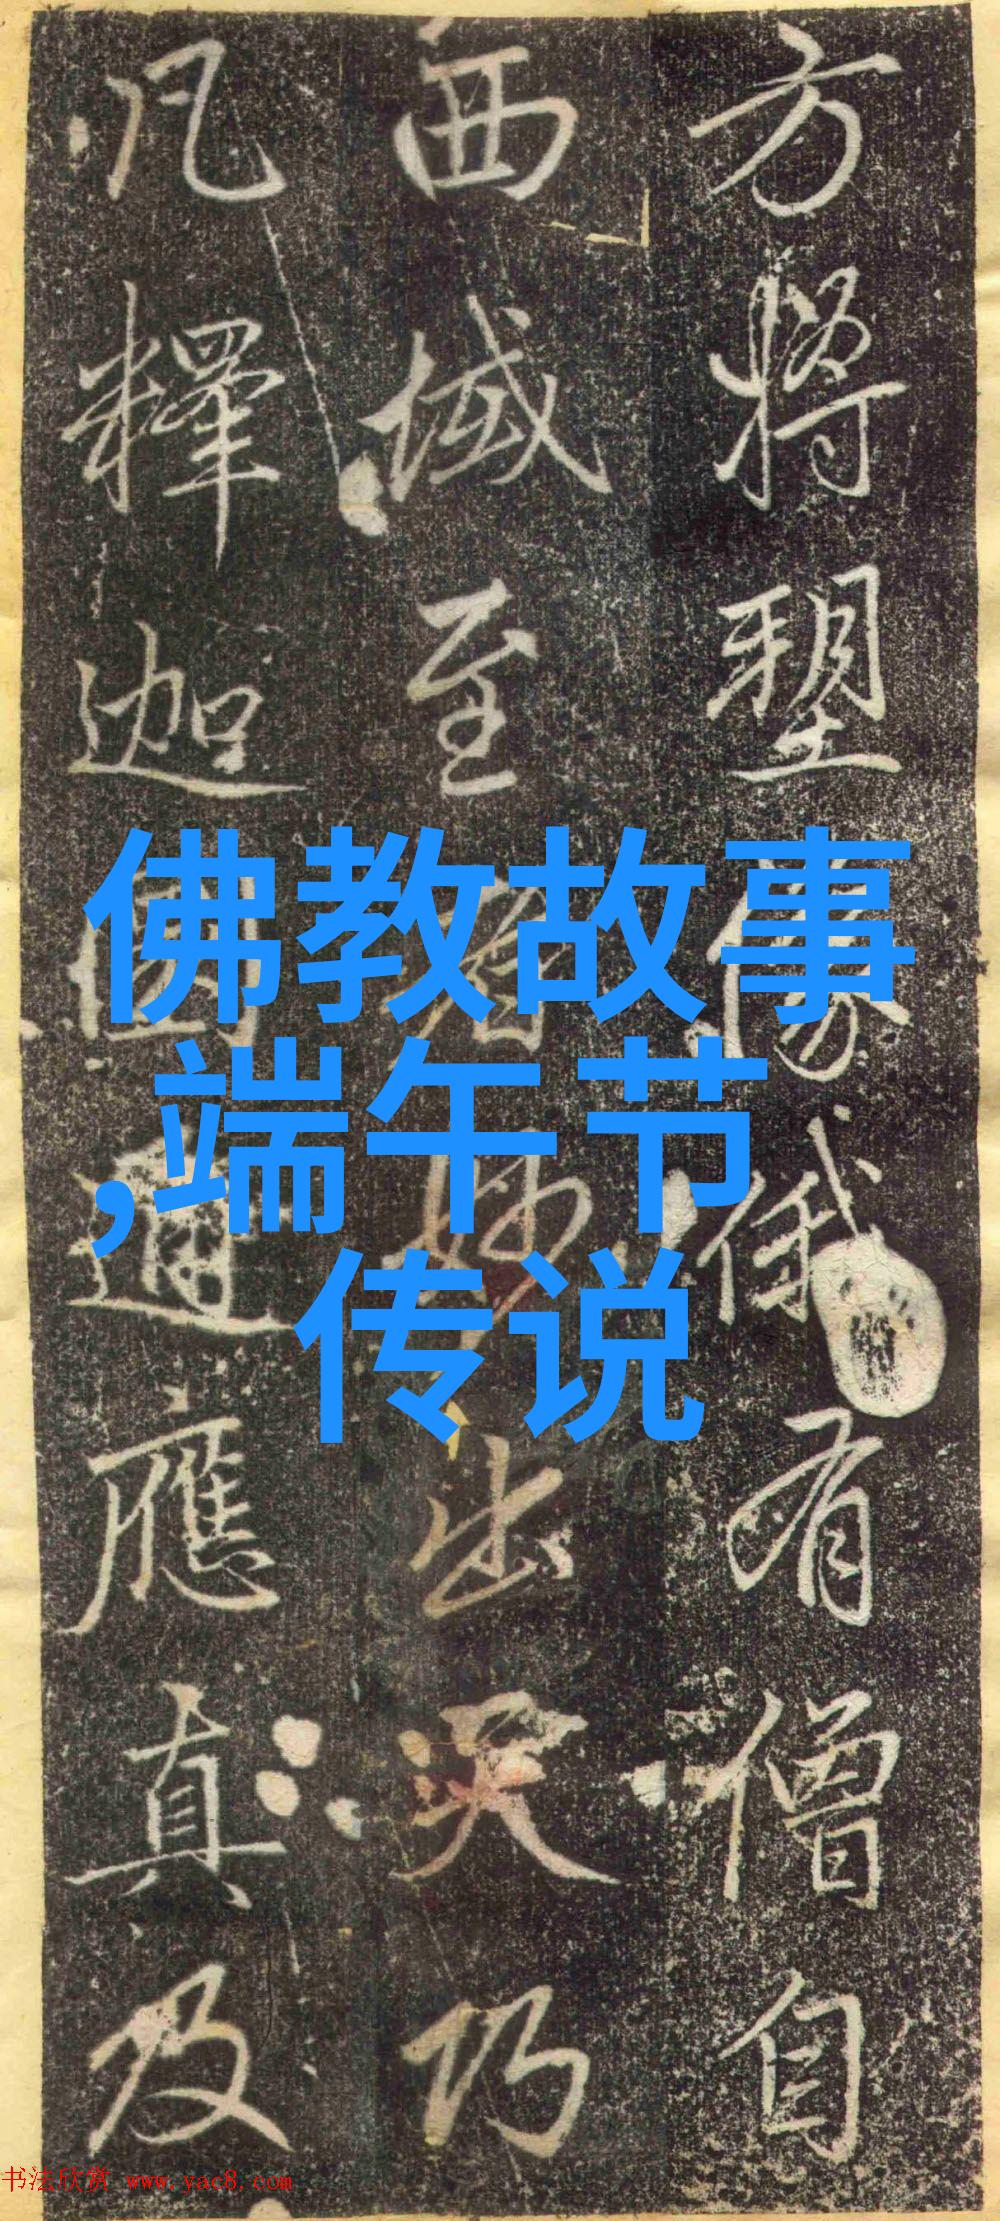 方將塑像俄有僧自
西域至妙出天巧
凡釋迦應真及
佛教故事
,端午节
传说
书法欣赏 www.yac8.com